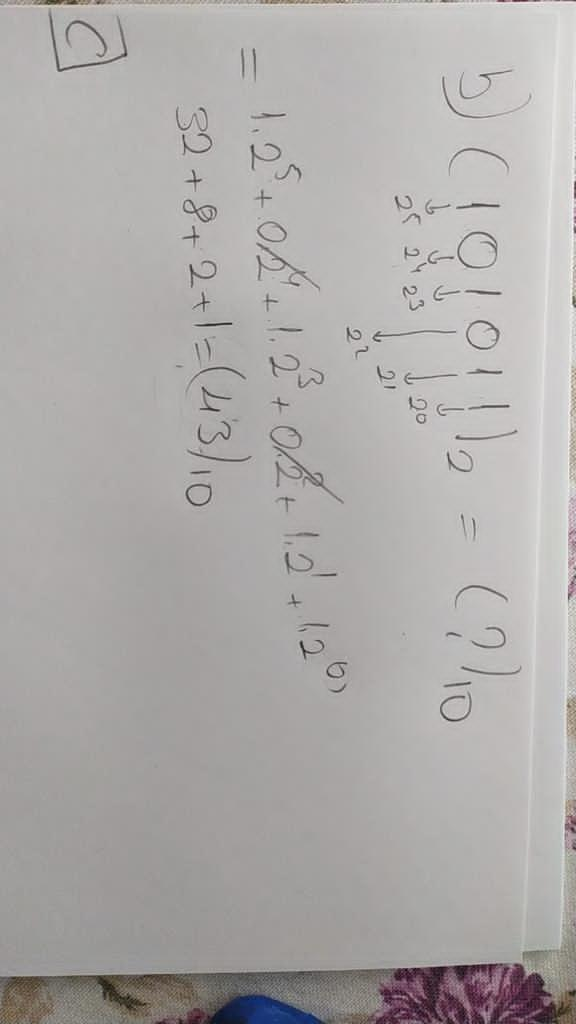 b) (101011)2 = (?)10
2⁵ 2⁴ 2³ 2² 2¹ 2⁰
= 1.2⁵ + 0.2⁴ + 1.2³ + 0.2² + 1.2¹ + 1.2⁰
32 + 8 + 2 + 1 = (43)10
C